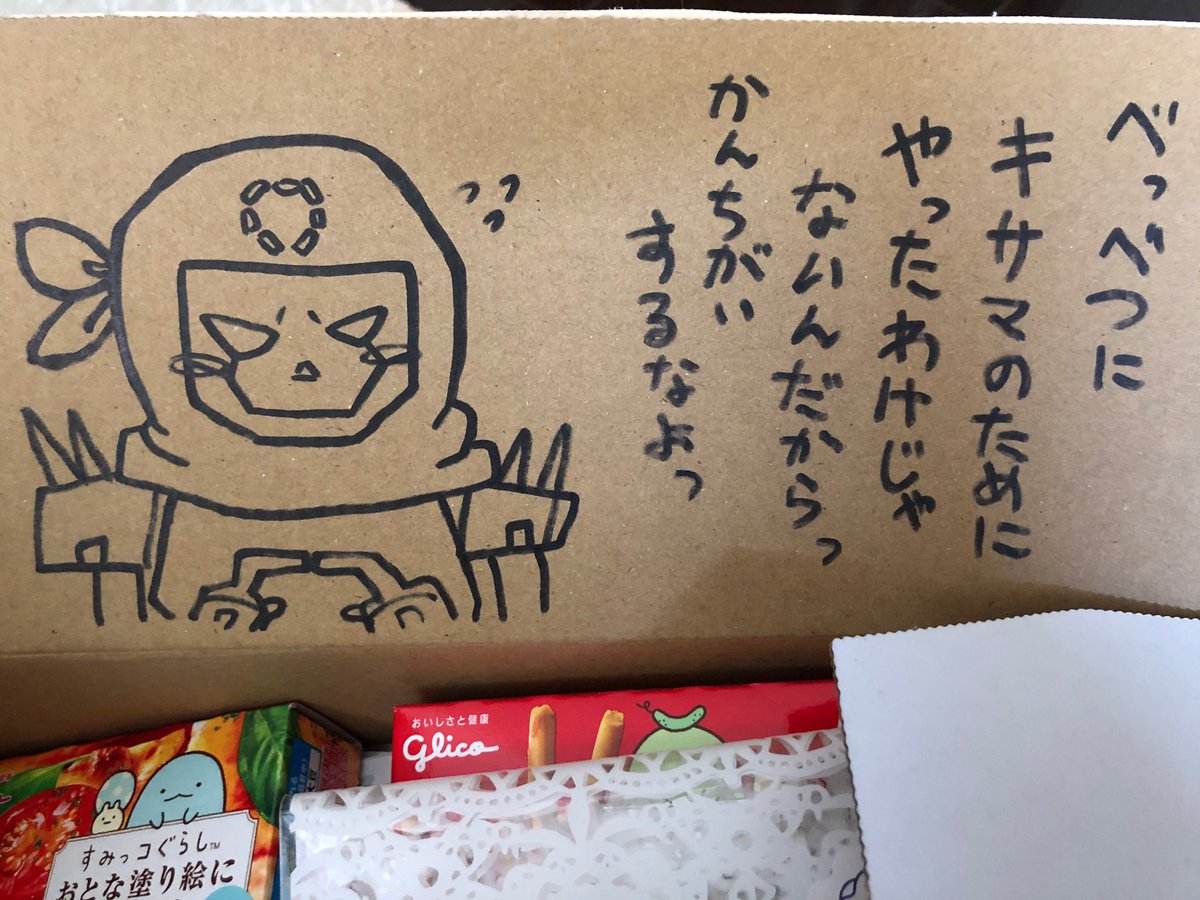 べっべつに
キサマのために
やったわけじゃ
ないんだからっ
かんちがい
するなよっ
おいしさと健康
glico
すみっコぐらし™
おとな塗り絵に